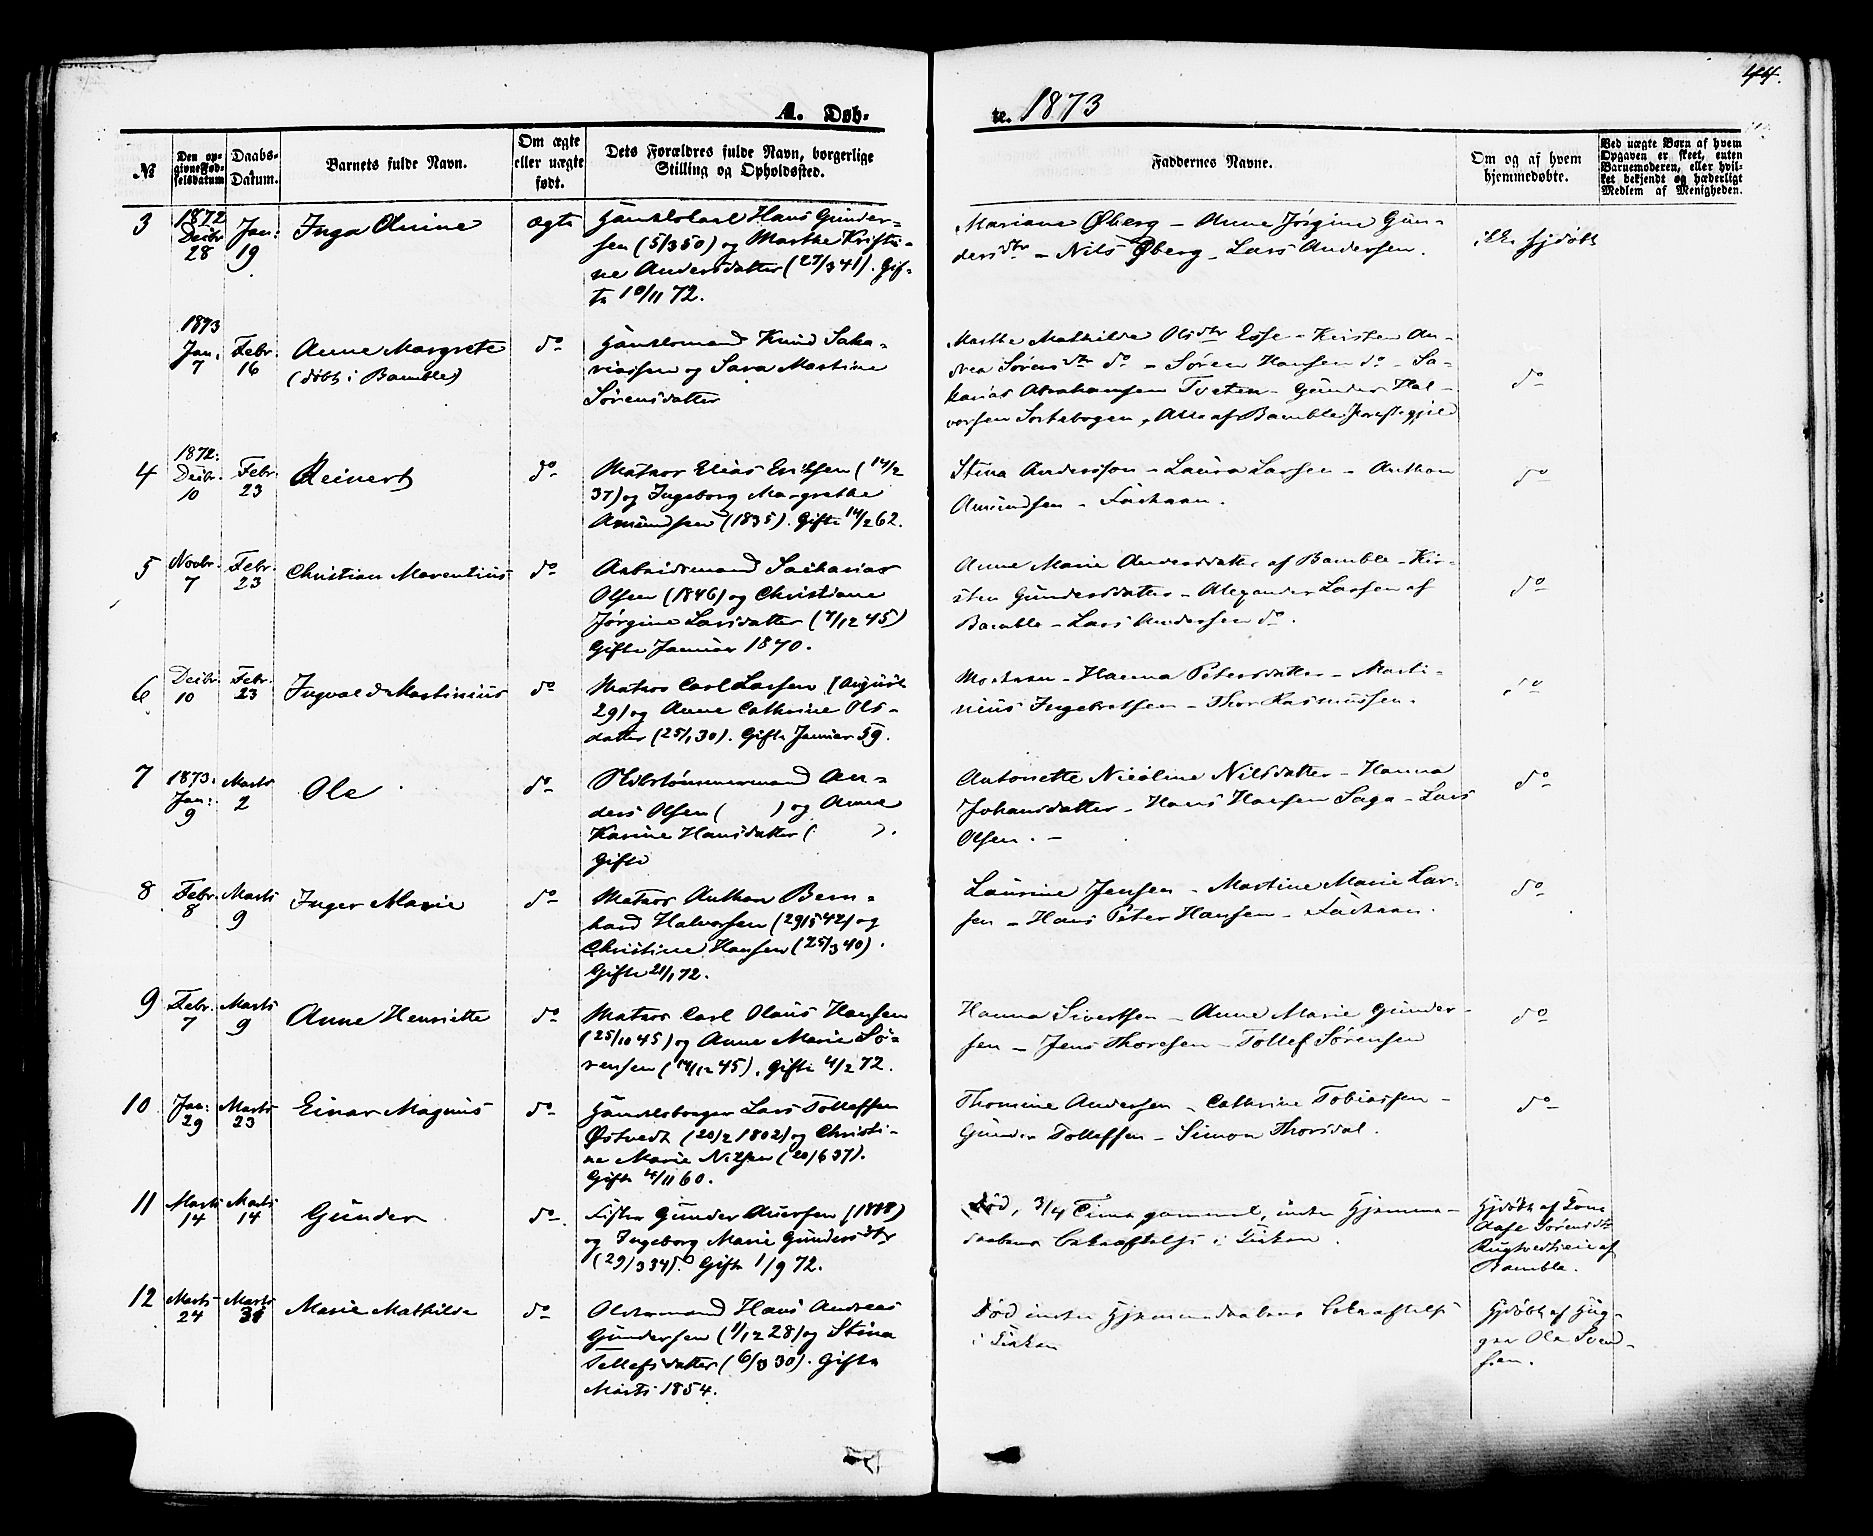 44.
A. Døb-
te. 1873
№
Den op-
givne Fød-
selsdatum
Daabs-
Datum.
Barnets fulde Navn.
Om ægte
eller uægte
født.
Dets Forældres fulde Navn, borgerlige
Stilling og Opholdssted.
Faddernes Navne.
Om og af hvem
hjemmedøbte.
Ved uægte Børn af hvem
Opgaven er skeet, enten
Barnemoderen, eller hvil-
ket bekjendt og hæderligt
Medlem af Menigheden.
3
1872
Decbr
28
Jan:
19
Inga
ægte
Hans Gunder-
sen (5/3 50) og Marthe Kristi-
ne Andersdatter (27/3 41). Gif-
te 10/11 72.
Mariane Øberg – Anne Jørgine Gun-
dersdtr – Nils Øberg – Lars Andersen.
ikke hjdøbt
1873
Jan.
7
Febr.
16
Anne Margrete
(døbt i Bamble)
do
Knud Saka-
riassen og Sara Martine
Sørensdatter
Marthe Mathilde Olsdtr – Kirsten An-
drea Sørensdtr do – Søren Hansen do – Sa-
karias Abrahamsen Tveten – Gunder Hal-
vorsen, Alle af Bamble Præstegjeld
do
4
1872:
Decbr.
10
Febr.
23
Reinert
do
Matros Elias Eriksen (14/2
37) og Ingeborg Margrethe
Amundsen (1835). Gifte 14/2 62.
Stina Andersson – Laura Larsen – Anthon
Amundsen – Faderen.
do
5
Novbr.
7
Febr.
23
Christian Marentius
do
Arbeidsmand Sacharias
Olsen (1846) og Christiane
Jørgine Larsdatter (7/12 45)
Gifte Januar 1870.
Anne Marie Andersdatter af Bamble – Kir-
sten Gundersdatter – Alexander Larsen af
Bamble – Lars Andersen do.
do
6
Decbr.
10
Febr.
23
Ingvald Martinius
do
Matros Carl Larsen (August
29) og Anne Cathrine Ols-
datter (25/1 30). Gifte Januar 59.
Moderen – Hanna Petersdatter – Marti-
nius Ingebretsen – Thor Rasmussen.
do
7
1873:
Jan:
9
Marts
2
Ole
do
Skibstømmermand An-
ders Olsen ( ) og Anne
Karine Hansdatter ( ).
Gifte
Antonette Nicoline Nilsdatter – Hanna
Johansdatter – Hans Hansen Saga – Lars
Olsen. –
do
8
Febr.
8
Marts
9
Inger Marie
do
Matros Anthon Bern-
hard Halvorsen (29/5 42) og
Christine Hansen (25/3 40).
Gifte 21/1 72.
Laurine Jensen – Martine Marie Lar-
sen – Hans Peter Hansen – Faderen.
do
9
Febr.
7
Marts
9
Anne Henriette
do
Matros Carl Olaus Hansen
(25/10 45) og Anne Marie Sø-
rensen (14/12 45). Gifte 4/2 72.
Hanna Sivertsen – Anne Marie Gunder-
sen – Jens Thoresen – Tollef Sørensen
do
10
Jan:
29
Marts
23
Einar Magnus
do
Handelsborger Lars Tollefsen
Østvedt (20/2 1802) og Christi-
ne Marie Nilsen (20/6 37).
Gifte 4/11 60.
Thomine Andersen – Cathrine Tobiassen –
Gunder Tollefsen – Simon Thorsdal.
do
11
Marts
14
Marts
14
Gunder
do
Fisker Gunder
og Ingeborg Marie Gundersdtr
(29/3 34). Gifte 1/9 72.
Død, 3/4 Time gammel, inden Hjemme-
daabens Bekræftelse i Kirken.
Hjdøbt af
Sørensdtr
af
Bamble.
12
Marts
24
Marts
31
Marie Mathilde
do
Oldermand Hans Andreas
Gundersen (1/12 28) og Stina
Tollefsdatter (6/3 30). Gifte
Marts 1854.
Død inden Hjemmedaabens Bekræftelse
i Kirken
Hjdøbt af
Ole Svend-
sen.